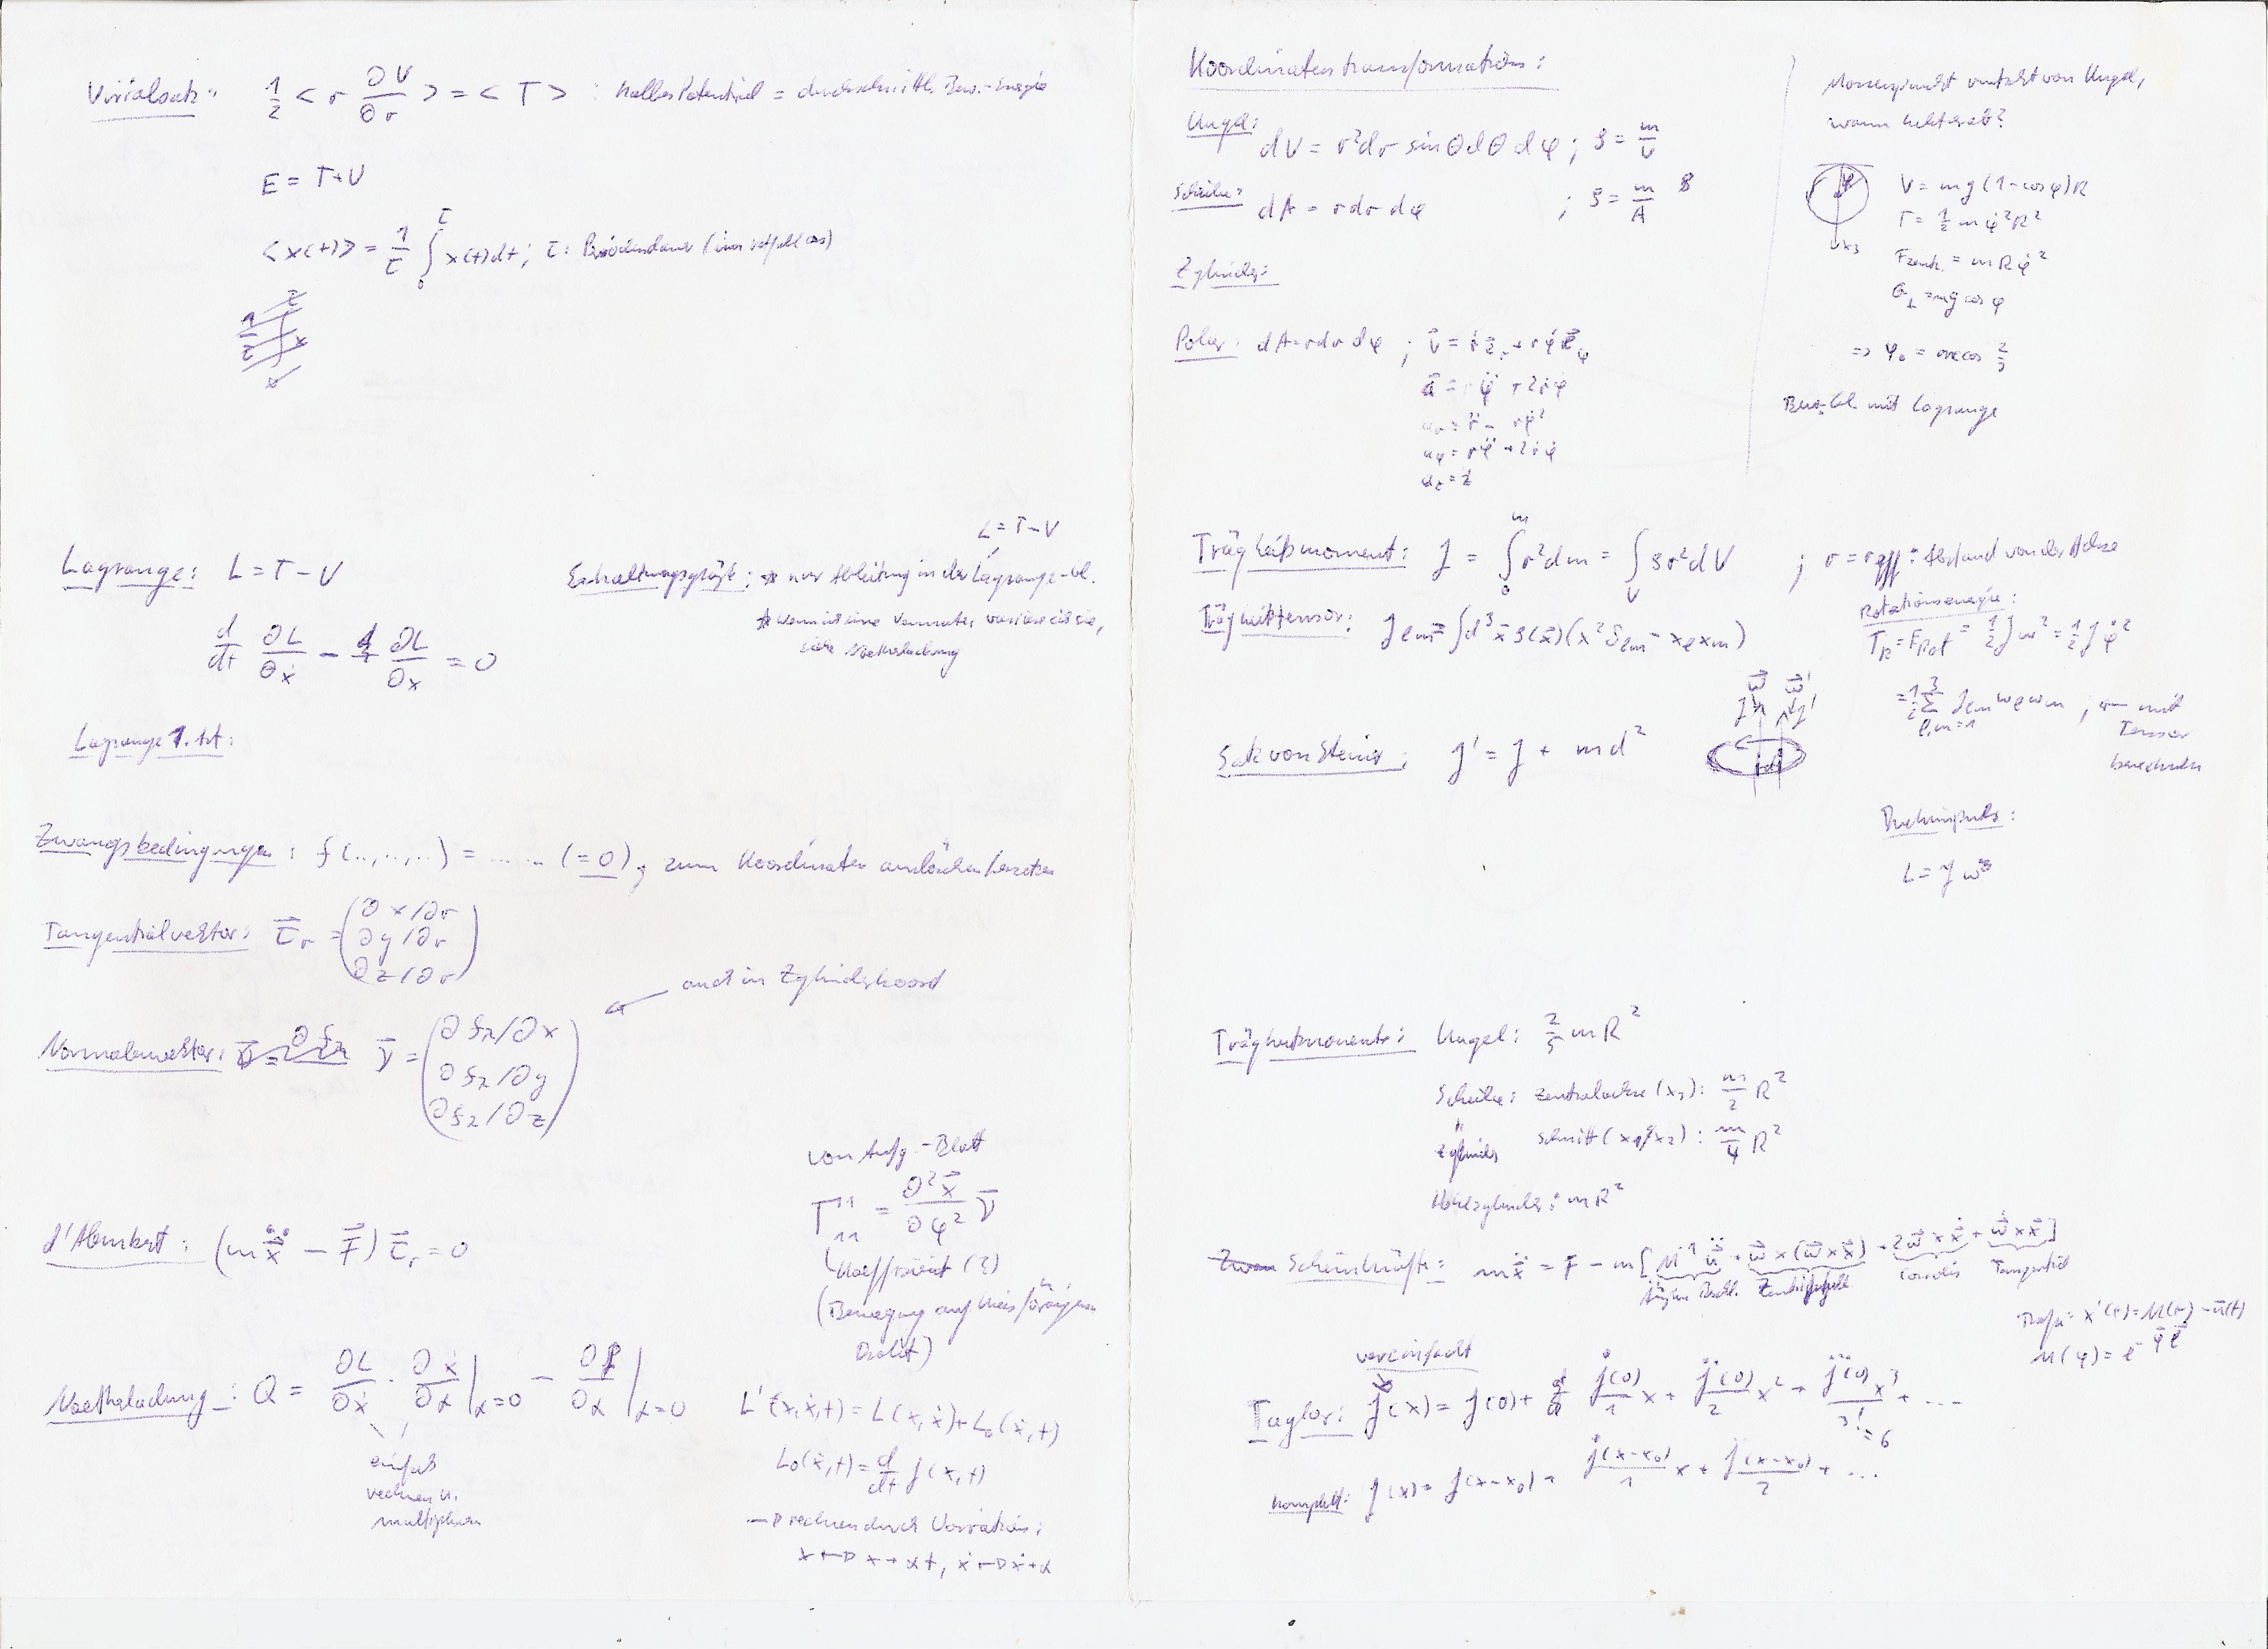 Virialsatz: 1/2 < r ∂V/∂r > = < T > : halbes Potential = durchschnittl. Bew.-Energie
E = T+V
<x(t)> = 1/τ ∫₀^τ x(t)dt; τ: Periodendauer
Lagrange: L = T - V
d/dt ∂L/∂ẋ - ∂L/∂x = 0
L = T - V
Erhaltungsgröße: * nur Ableitung in der Lagrange-Gl.
* wenn ich eine vermute, variiere ich sie,
siehe Noetherladung
Lagrange 1. Art:
Zwangsbedingungen: f(..,..,..) = ..... (=0), zum Koordinaten
Tangentialvektor: τ⃗r = (∂x/∂r
∂y/∂r
∂z/∂r)
auch in Zylinderkoord
Normalenvektor: ν⃗ = (∂fλ/∂x
∂fλ/∂y
∂fλ/∂z)
von Aufg.-Blatt
Γ¹¹₁₁ = ∂²x⃗/∂φ² ν⃗
Koeffizient (?)
(Bewegung auf kreisförmigem
Orbit)
d'Alembert: (m ẍ⃗ - F⃗) τ⃗r = 0
Noetherladung: Q = ∂L/∂ẋ · ∂x/∂α |α=0 - ∂f/∂α |α=0
einfach
rechnen u.
multiplizieren
L'(x,ẋ,t) = L(x,ẋ)+L₀(ẋ,t)
L₀(ẋ,t) = d/dt f(x,t)
→ rechnen durch Variation:
x ↦ x+αt, ẋ ↦ ẋ+α
Koordinatentransformation:
Kugel: dV = r²dr sinθdθ dφ ; ρ = m/V
Scheibe: dA = r dr dφ ; ρ = m/A
Zylinder:
Polar: dA = r dr dφ ; v⃗ = ṙ e⃗r + r φ̇ e⃗φ
a⃗ = r φ̈ + 2ṙφ̇
ar = r̈ - rφ̇²
aφ = rφ̈ + 2ṙφ̇
az = z̈
Massenpunkt rutscht von Kugel,
wann hebt er ab?
V = mg(1-cosφ)R
T = 1/2 m φ̇²R²
Fzentr. = mRφ̇²
G⊥ = mg cosφ
⇒ φ₀ = arccos 2/3
Bew.-Gl. mit Lagrange
Trägheitsmoment: J = ∫₀^m r²dm = ∫_V ρr²dV ; r = r eff: Abstand von der Achse
Trägheitstensor: Jlm = ∫d³x⃗ ρ(x⃗)(x²δlm - xl xm)
Rotationsenergie:
TR = ERot = 1/2 Jω² = 1/2 Jφ̇²
= 1/2 Σ³ l,m=1 Jlm ωl ωm ; ← mit
Tensor
berechnen
Satz von Steiner: J' = J + md²
ω⃗ ω⃗'
J J'
d
Drehimpuls:
L = J ω⃗
Trägheitsmomente: Kugel: 2/5 mR²
Scheibe: Zentralachse (x₃): m/2 R²
Zylinder Schnitt (x₁/x₂): m/4 R²
Hohlzylinder: mR²
Scheinkräfte: mẍ⃗ = F - m[M⁻¹ü⃗ + ω⃗×(ω⃗×x⃗) + 2ω⃗×ẋ⃗ + ω̇⃗×x⃗]
Beschl. Zentrifugal Coriolis Tangential
M(φ) = e^φ⃗ℓ⃗
vereinfacht
Taylor: f(x) = f(0) + ḟ(0)/1 x + f̈(0)/2 x² + f⃛(0)/3! x³ + ...
=6
komplett: f(x) = f(x-x₀) + ḟ(x-x₀)/1 x + f̈(x-x₀)/2 + ...